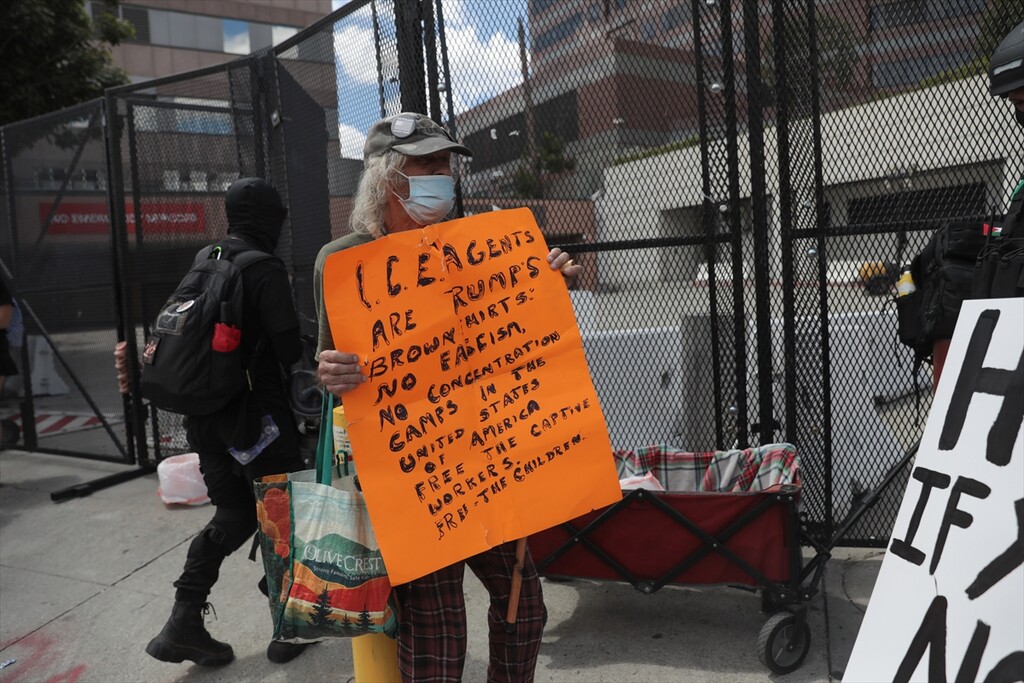 I.C.E. AGENTS
ARE TRUMP'S
BROWN SHIRTS.
NO FACISM,
NO CONCENTRATION
CAMPS IN THE
UNITED STATES
OF AMERICA
FREE THE CAPTIVE
WORKERS.
FREE THE CHILDREN.
OLIVE CREST
IF